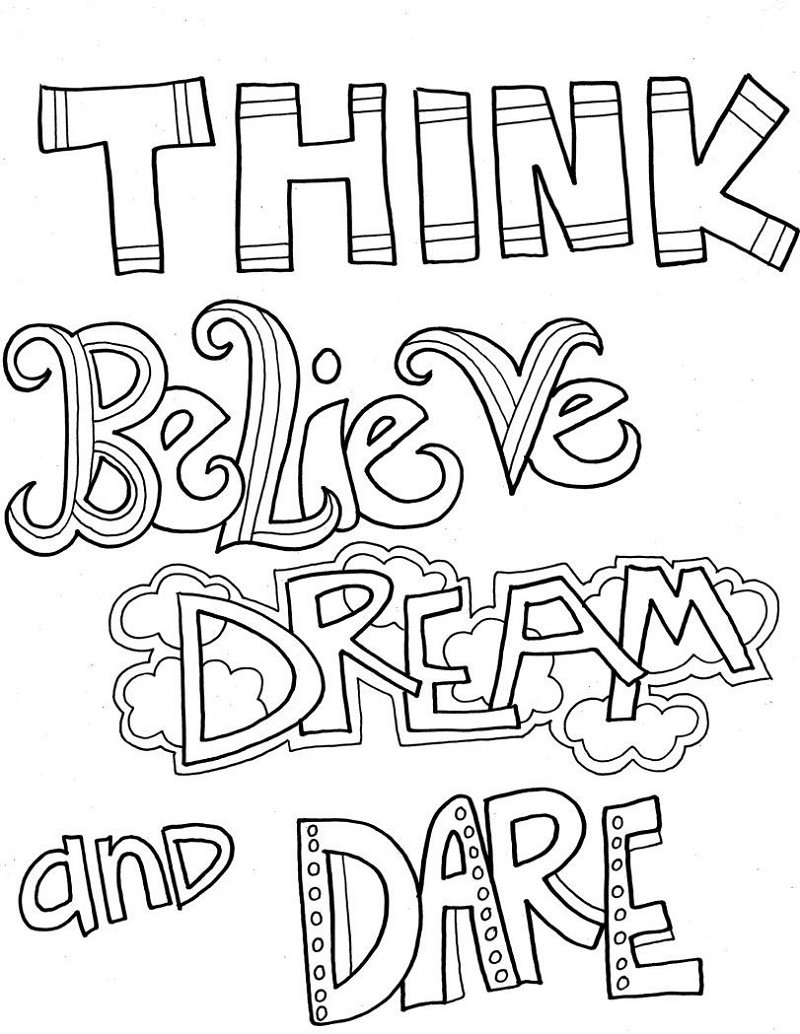 THINK
BeLieVe
DREAM
anD DARE